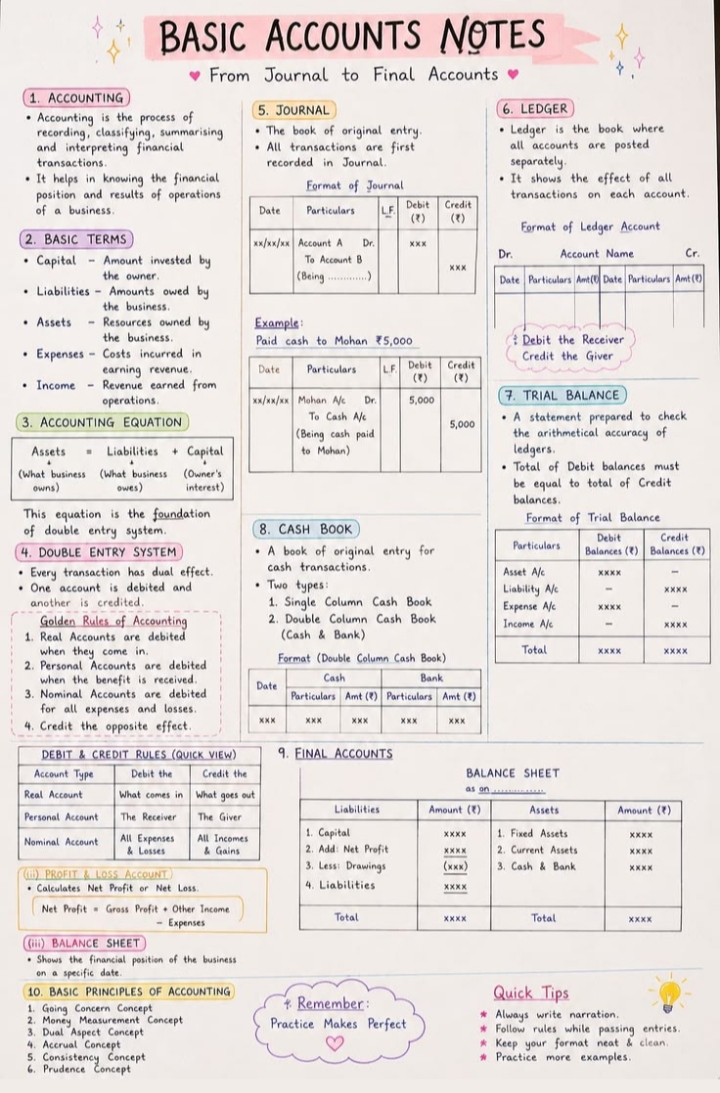 BASIC ACCOUNTS NOTES
From Journal to Final Accounts
1. ACCOUNTING
• Accounting is the process of
recording, classifying, summarising
and interpreting financial
transactions.
• It helps in knowing the financial
position and results of operations
of a business.
2. BASIC TERMS
• Capital – Amount invested by
the owner.
• Liabilities – Amounts owed by
the business.
• Assets – Resources owned by
the business.
• Expenses – Costs incurred in
earning revenue.
• Income – Revenue earned from
operations.
3. ACCOUNTING EQUATION
Assets = Liabilities + Capital
(What business (What business (Owner's
owns) owes) interest)
This equation is the foundation
of double entry system.
4. DOUBLE ENTRY SYSTEM
• Every transaction has dual effect.
• One account is debited and
another is credited.
Golden Rules of Accounting
1. Real Accounts are debited
when they come in.
2. Personal Accounts are debited
when the benefit is received.
3. Nominal Accounts are debited
for all expenses and losses.
4. Credit the opposite effect.
5. JOURNAL
• The book of original entry.
• All transactions are first
recorded in Journal.
Format of Journal
Date Particulars L.F. Debit (₹) Credit (₹)
xx/xx/xx Account A Dr. xxx
To Account B xxx
(Being ............)
Example:
Paid cash to Mohan ₹5,000
Date Particulars L.F. Debit (₹) Credit (₹)
xx/xx/xx Mohan A/c Dr. 5,000
To Cash A/c 5,000
(Being cash paid
to Mohan)
8. CASH BOOK
• A book of original entry for
cash transactions.
• Two types:
1. Single Column Cash Book
2. Double Column Cash Book
(Cash & Bank)
Format (Double Column Cash Book)
Date Cash Bank
Particulars Amt (₹) Particulars Amt (₹)
xxx xxx xxx xxx xxx
6. LEDGER
• Ledger is the book where
all accounts are posted
separately.
• It shows the effect of all
transactions on each account.
Format of Ledger Account
Dr. Account Name Cr.
Date Particulars Amt(₹) Date Particulars Amt(₹)
: Debit the Receiver
Credit the Giver
7. TRIAL BALANCE
• A statement prepared to check
the arithmetical accuracy of
ledgers.
• Total of Debit balances must
be equal to total of Credit
balances.
Format of Trial Balance
Particulars Debit Balances (₹) Credit Balances (₹)
Asset A/c xxxx –
Liability A/c – xxxx
Expense A/c xxxx –
Income A/c – xxxx
Total xxxx xxxx
DEBIT & CREDIT RULES (QUICK VIEW)
Account Type Debit the Credit the
Real Account What comes in What goes out
Personal Account The Receiver The Giver
Nominal Account All Expenses & Losses All Incomes & Gains
(ii) PROFIT & LOSS ACCOUNT
• Calculates Net Profit or Net Loss.
Net Profit = Gross Profit + Other Income
– Expenses
(iii) BALANCE SHEET
• Shows the financial position of the business
on a specific date.
9. FINAL ACCOUNTS
BALANCE SHEET
as on ..............
Liabilities Amount (₹) Assets Amount (₹)
1. Capital xxxx 1. Fixed Assets xxxx
2. Add: Net Profit xxxx 2. Current Assets xxxx
3. Less: Drawings (xxx) 3. Cash & Bank xxxx
4. Liabilities xxxx
Total xxxx Total xxxx
10. BASIC PRINCIPLES OF ACCOUNTING
1. Going Concern Concept
2. Money Measurement Concept
3. Dual Aspect Concept
4. Accrual Concept
5. Consistency Concept
6. Prudence Concept
* Remember:
Practice Makes Perfect
Quick Tips
★ Always write narration.
★ Follow rules while passing entries.
★ Keep your format neat & clean.
★ Practice more examples.